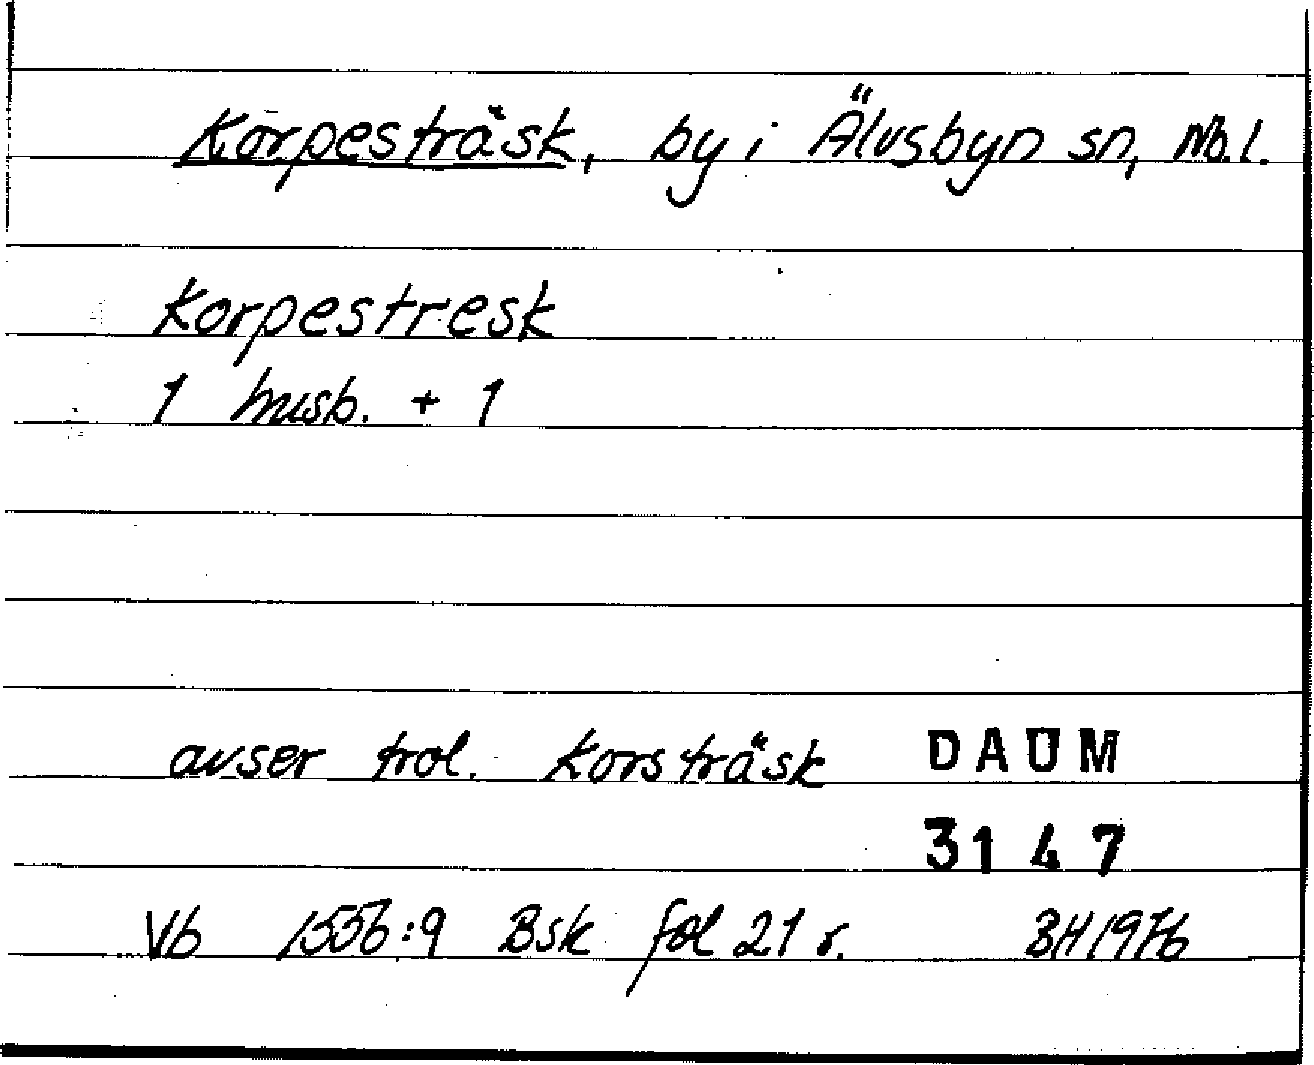 Korpesträsk, by i Älvsbyn sn, Nb. l.
Korpestresk
1 husb. + 1
avser trol. Korsträsk
DAUM
3147
Vb 1556:9 Bsk fol 21 r. BH 1976